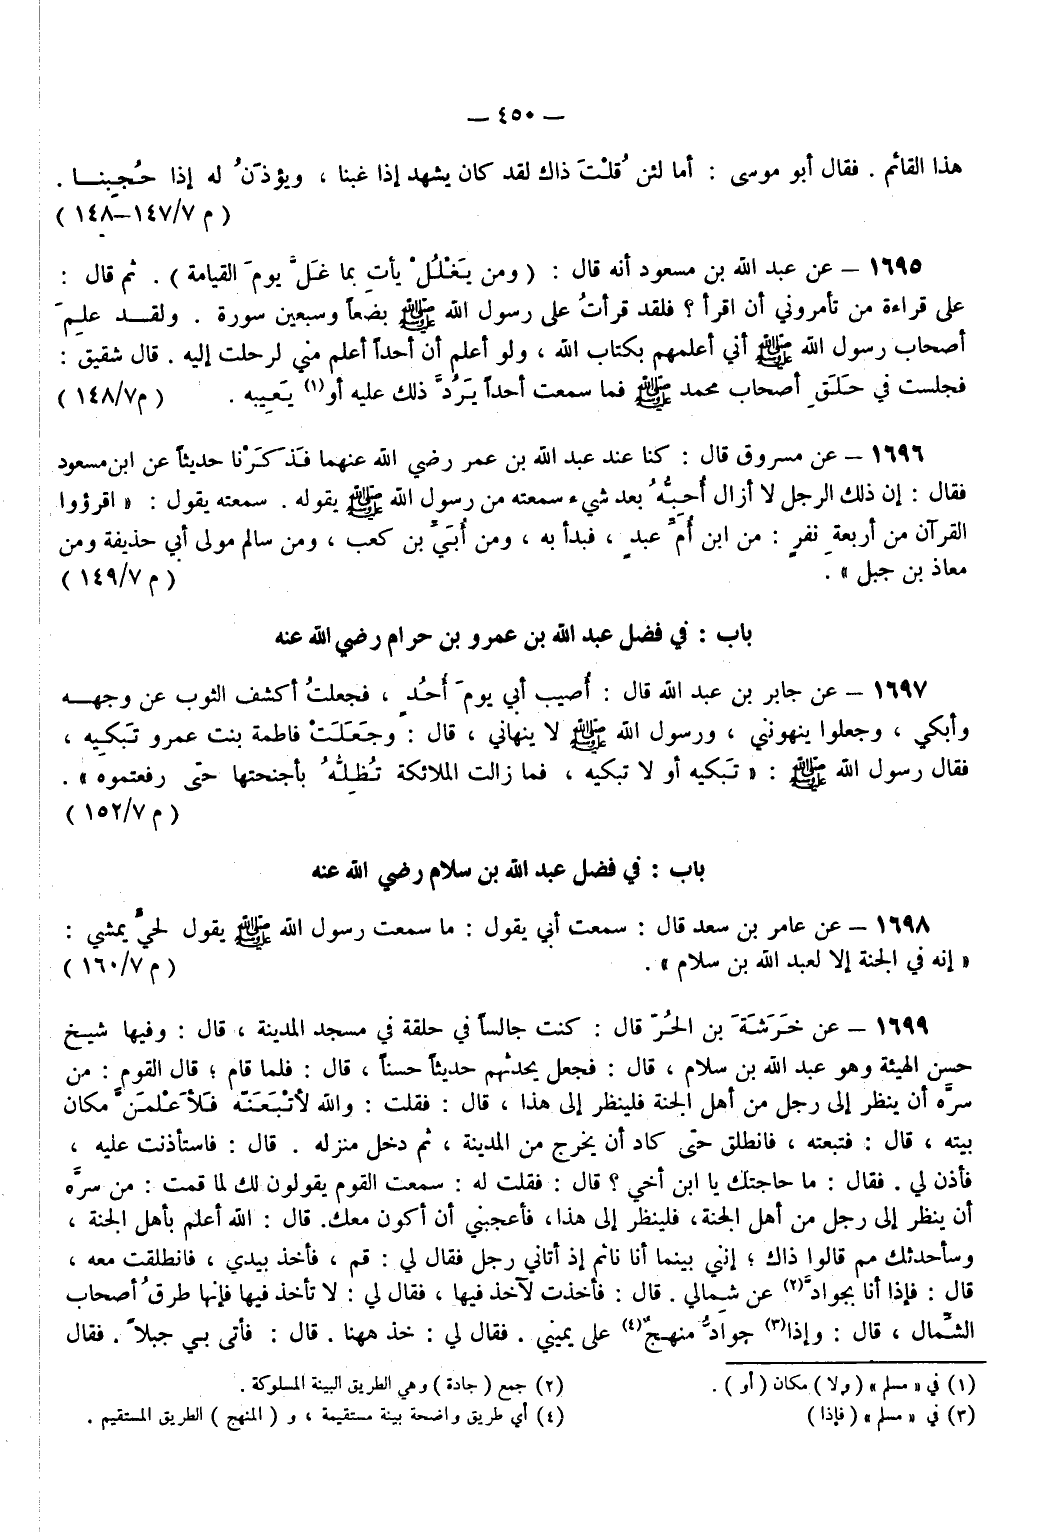 — ٤٥٠ —
هذا القائم . فقال أبو موسى : أما لئن قُلْتَ ذاك لقد كان يشهد إذا غبنا ، ويؤذَنُ له إذا حُجِبنـا .
( م ٧/١٤٧–١٤٨ )
١٦٩٥ – عن عبد الله بن مسعود أنه قال : ( ومن يَغْلُلْ يأتِ بما غَلَّ يومَ القيامة ) . ثم قال :
على قراءة من تأمروني أن اقرأ ؟ فلقد قرأتُ على رسول الله ﷺ بضعاً وسبعين سورة . ولقـد علِمَ
أصحاب رسول الله ﷺ أني أعلمهم بكتاب الله ، ولو أعلم أن أحداً أعلم مني لرحلت إليه . قال شقيق :
فجلست في حَلَقِ أصحاب محمد ﷺ فما سمعت أحداً يَرُدُّ ذلك عليه أو(١) يَعيبه . ( م٧/١٤٨ )
١٦٩٦ – عن مسروق قال : كنا عند عبد الله بن عمر رضي الله عنهما فَذَكَرْنا حديثاً عن ابن مسعود
فقال : إن ذلك الرجل لا أزال أُحِبُّهُ بعد شيء سمعته من رسول الله ﷺ يقوله . سمعته يقول : « اقرؤوا
القرآن من أربعةِ نفرٍ : من ابن أُمِّ عبدٍ ، فبدأ به ، ومن أُبَيِّ بن كعب ، ومن سالم مولى أبي حذيفة ومن
معاذ بن جبل » . ( م ٧/١٤٩ )
باب : في فضل عبد الله بن عمرو بن حرام رضي الله عنه
١٦٩٧ – عن جابر بن عبد الله قال : أُصيب أبي يومَ أُحُدٍ ، فجعلتُ أكشف الثوب عن وجهـه
وأبكي ، وجعلوا ينهونني ، ورسول الله ﷺ لا ينهاني ، قال : وجَعَلَتْ فاطمة بنت عمرو تَبكيه ،
فقال رسول الله ﷺ : « تَبكيه أو لا تبكيه ، فما زالت الملائكة تُظِلُّهُ بأجنحتها حتى رفعتموه » .
( م ٧/١٥٢ )
باب : في فضل عبد الله بن سلام رضي الله عنه
١٦٩٨ – عن عامر بن سعد قال : سمعت أبي يقول : ما سمعت رسول الله ﷺ يقول لحيٍّ يمشي :
« إنه في الجنة إلا لعبد الله بن سلام » . ( م ٧/١٦٠ )
١٦٩٩ – عن خَرَشَةَ بن الحُرِّ قال : كنت جالساً في حلقة في مسجد المدينة ، قال : وفيها شيـخ
حسن الهيئة وهو عبد الله بن سلام ، قال : فجعل يحدثهم حديثاً حسناً ، قال : فلما قام ؛ قال القوم : من
سرَّه أن ينظر إلى رجل من أهل الجنة فلينظر إلى هذا ، قال : فقلت : والله لأتْبَعَنَّه فَلأَعْلَمَنَّ مكان
بيته ، قال : فتبعته ، فانطلق حتى كاد أن يخرج من المدينة ، ثم دخل منزله . قال : فاستأذنت عليه ،
فأذن لي . فقال : ما حاجتك يا ابن أخي ؟ قال : فقلت له : سمعت القوم يقولون لك لما قمت : من سرَّه
أن ينظر إلى رجل من أهل الجنة، فلينظر إلى هذا، فأعجبني أن أكون معك. قال : الله أعلم بأهل الجنة ،
وسأحدثك مم قالوا ذاك ؛ إنني بينما أنا نائم إذ أتاني رجل فقال لي : قم ، فأخذ بيدي ، فانطلقت معه ،
قال : فإذا أنا بجوادَّ(٢) عن شمالي . قال : فأخذت لآخذ فيها ، فقال لي : لا تأخذ فيها فإنها طرقُ أصحاب
الشِّمال ، قال : وإذا(٣) جوادُّ منهجٌ(٤) على يميني . فقال لي : خذ ههنا . قال : فأتى بـي جبلاً . فقال
(١) في « مسلم » ( ولا ) مكان ( أو ) .
(٢) جمع ( جادة ) وهي الطريق البينة المسلوكة .
(٣) في « مسلم » ( فإذا )
(٤) أي طريق واضحة بينة مستقيمة ، و ( المنهج ) الطريق المستقيم .